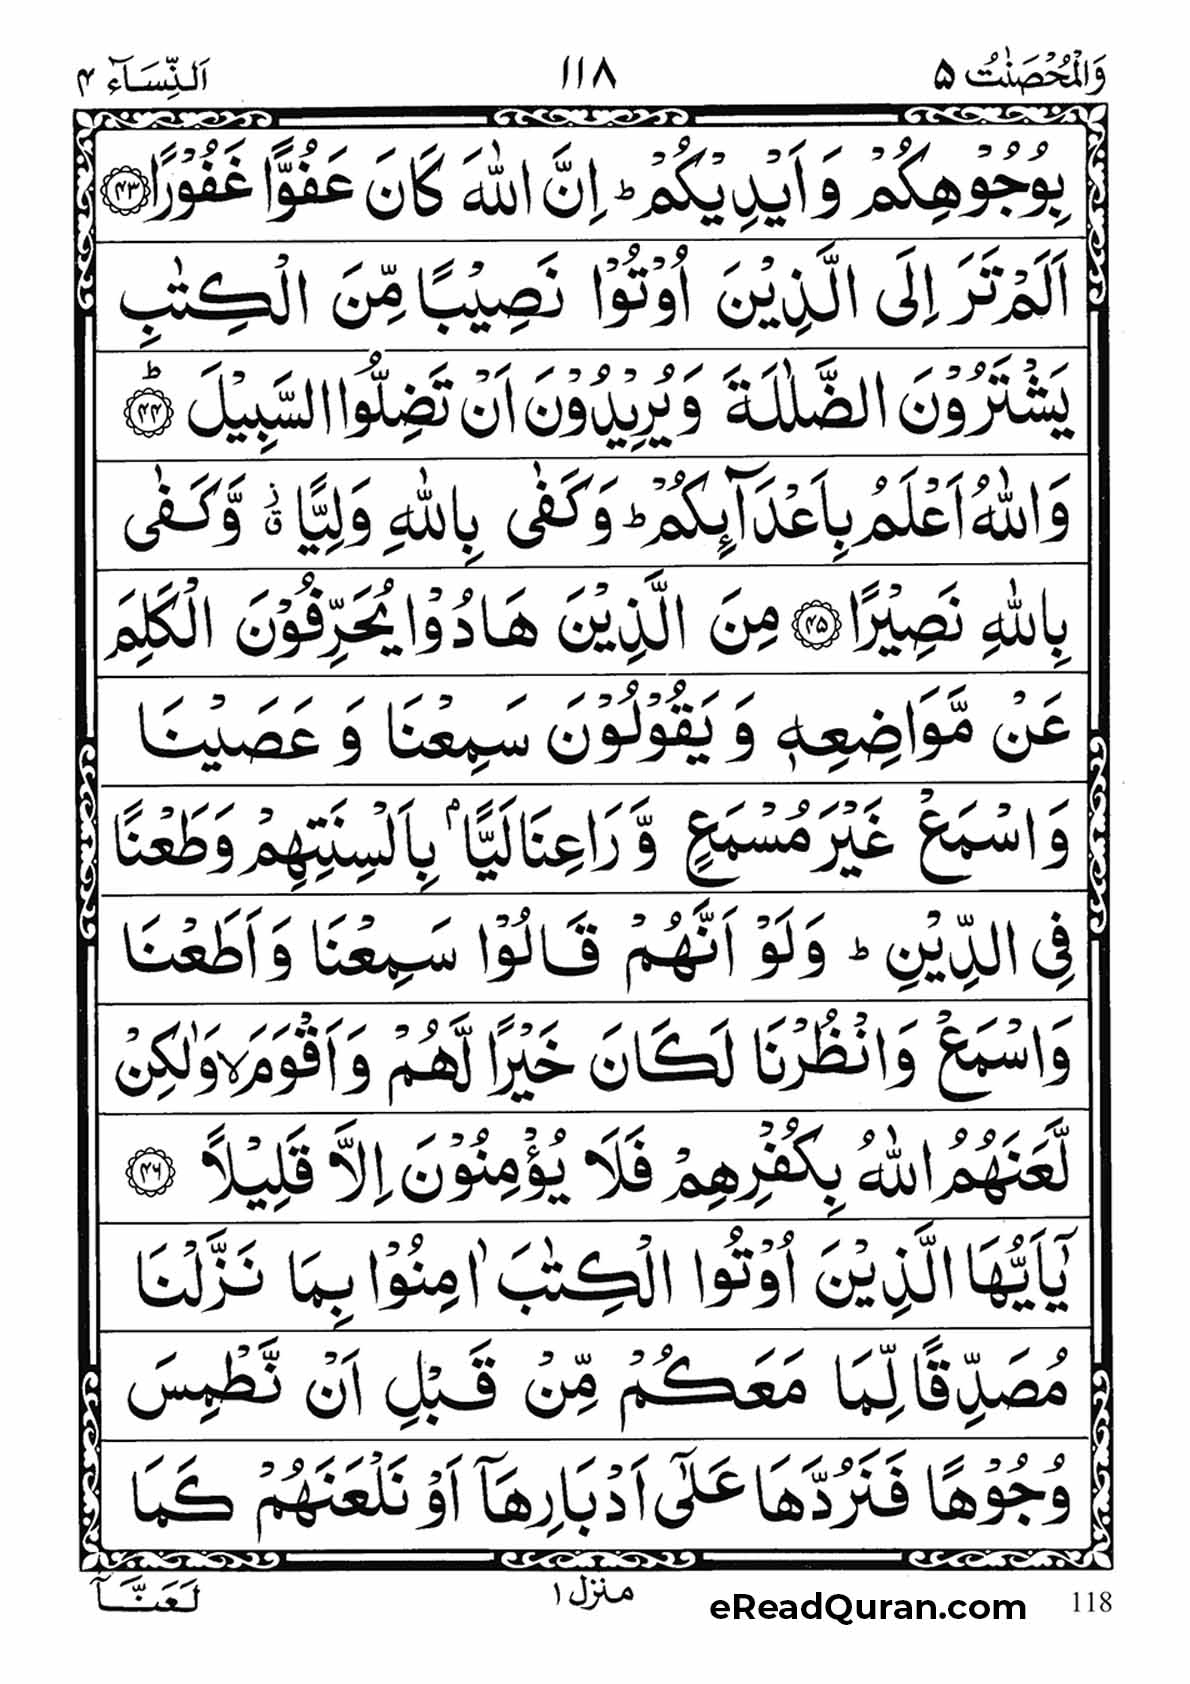 وَالْمُحْصَنٰتُ ۵ ١١٨ اَلنِّسَآء ۴
بِوُجُوْهِكُمْ وَ اَيْدِيْكُمْ ؕ اِنَّ اللّٰهَ كَانَ عَفُوًّا غَفُوْرًا ﴿۴۳﴾
اَلَمْ تَرَ اِلَى الَّذِيْنَ اُوْتُوْا نَصِيْبًا مِّنَ الْكِتٰبِ
يَشْتَرُوْنَ الضَّلٰلَةَ وَ يُرِيْدُوْنَ اَنْ تَضِلُّوا السَّبِيْلَ ﴿۴۴﴾ؕ
وَ اللّٰهُ اَعْلَمُ بِاَعْدَآىِٕكُمْ ؕ وَ كَفٰى بِاللّٰهِ وَلِيًّا ۗۙ وَّ كَفٰى
بِاللّٰهِ نَصِيْرًا ﴿۴۵﴾ مِنَ الَّذِيْنَ هَادُوْا يُحَرِّفُوْنَ الْكَلِمَ
عَنْ مَّوَاضِعِهٖ وَ يَقُوْلُوْنَ سَمِعْنَا وَ عَصَيْنَا
وَ اسْمَعْ غَيْرَ مُسْمَعٍ وَّ رَاعِنَا لَيًّاۢ بِاَلْسِنَتِهِمْ وَ طَعْنًا
فِى الدِّيْنِ ؕ وَ لَوْ اَنَّهُمْ قَالُوْا سَمِعْنَا وَ اَطَعْنَا
وَ اسْمَعْ وَ انْظُرْنَا لَكَانَ خَيْرًا لَّهُمْ وَ اَقْوَمَ ۙ وَ لٰكِنْ
لَّعَنَهُمُ اللّٰهُ بِكُفْرِهِمْ فَلَا يُؤْمِنُوْنَ اِلَّا قَلِيْلًا ﴿۴۶﴾
يٰۤاَيُّهَا الَّذِيْنَ اُوْتُوا الْكِتٰبَ اٰمِنُوْا بِمَا نَزَّلْنَا
مُصَدِّقًا لِّمَا مَعَكُمْ مِّنْ قَبْلِ اَنْ نَّطْمِسَ
وُجُوْهًا فَنَرُدَّهَا عَلٰۤى اَدْبَارِهَاۤ اَوْ نَلْعَنَهُمْ كَمَا
لَعَنَّاۤ منزل ١ eReadQuran.com 118